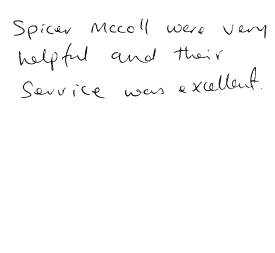 Spicer Mccoll were very
helpful and their
Service was excellent.